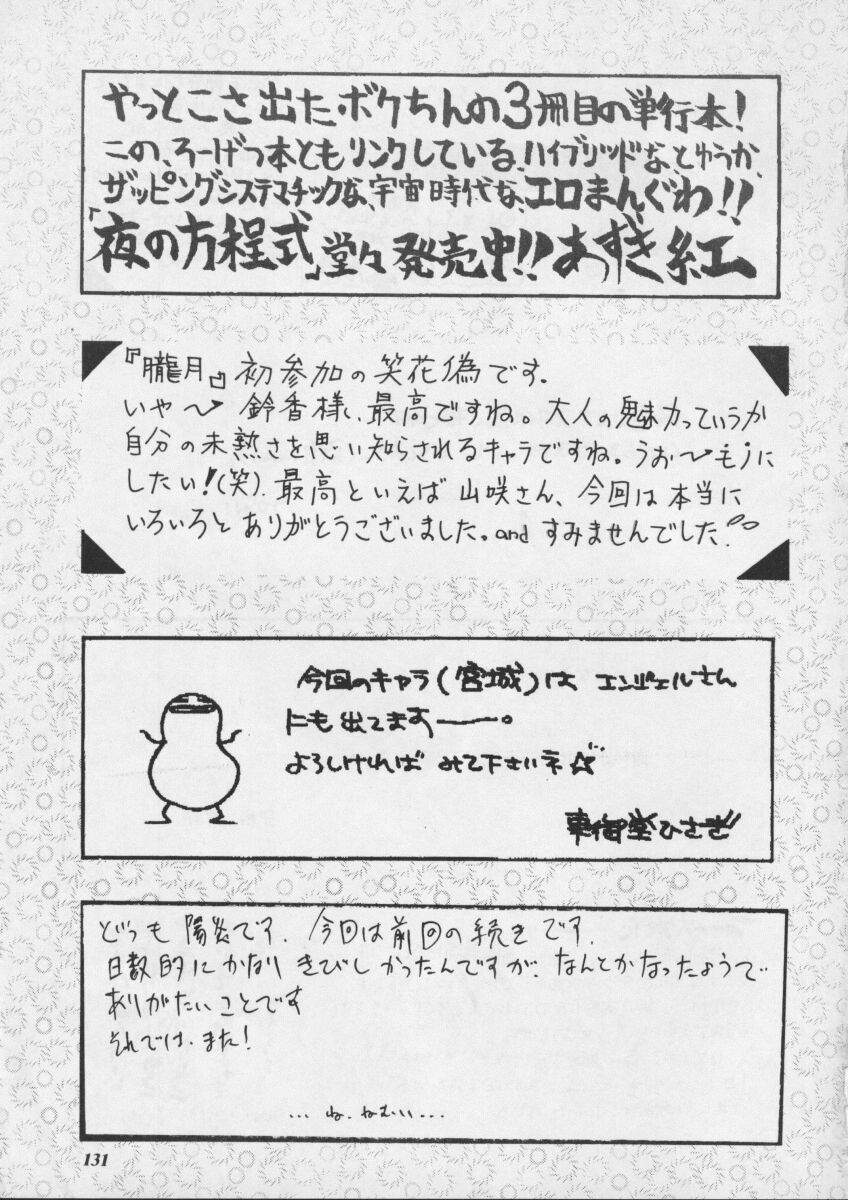 やっとこさ出たボクちんの3冊目の単行本!
この、ろーげつ本ともリンクしている、ハイブリッドな、とゆうか、
ザッピングシステマチックな、宇宙時代な、エロまんぐわ!!
「夜の方程式」堂々発売中!!あずき紅
『朧月』初参加の笑花偽です.
いや〜 鈴香様、最高ですね。大人の魅力っていうか
自分の未熟さを思い知らされるキャラですね。うお〜モノに
したい!(笑). 最高といえば山咲さん、今回は本当に
いろいろとありがとうございました。andすみませんでした!
今回のキャラ(宮城)は エンジェルさん
にも出てます――。
よろしければ みて下さいネ☆
東御堂ひさぎ
どうも 陽炎です. 今回は前回の続きです.
日数的にかなりきびしかったんですが、なんとかなったようで
ありがたいことです
それでは、また!
... ね、ねむいい...
131